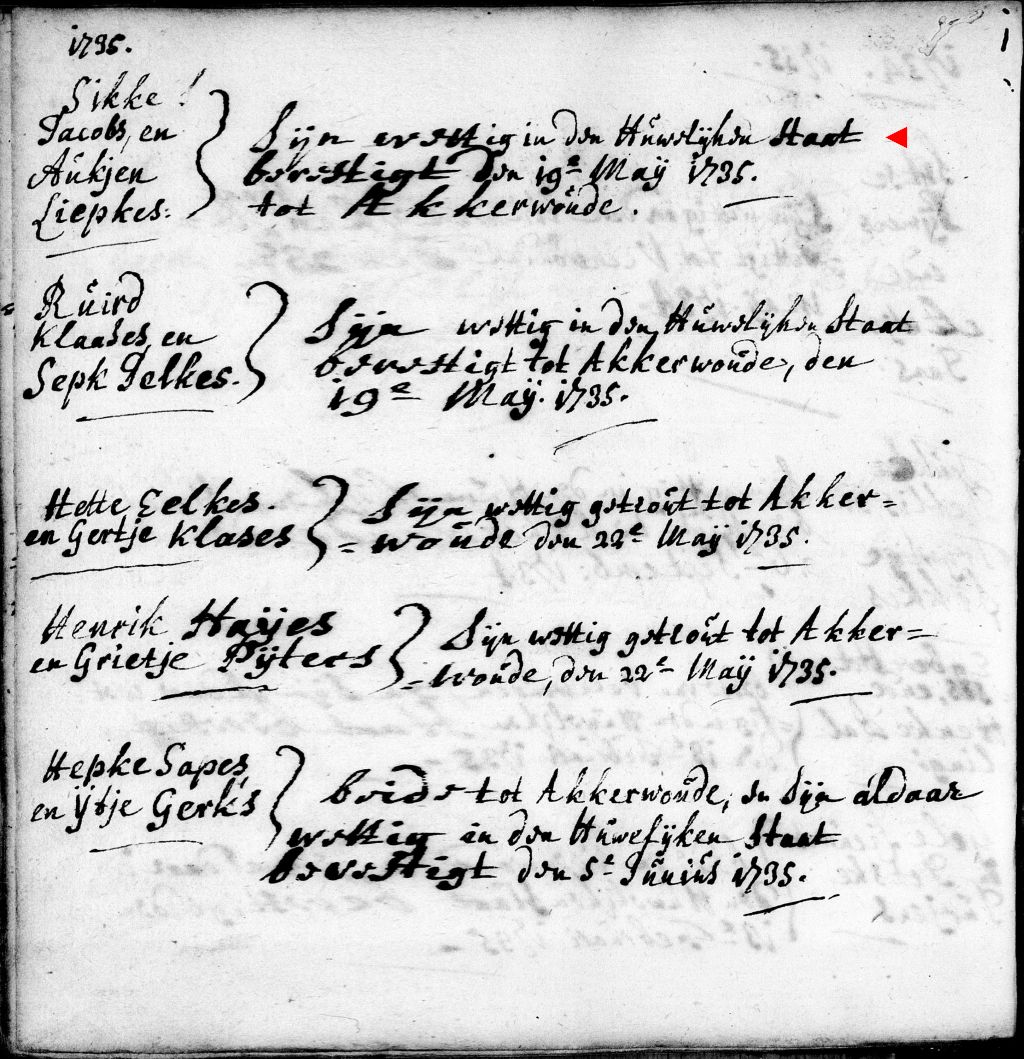 1735.
Sikke
Jacobs, en
Aukjen
Liepkes.
Sijn wettig in den Huwelijken Staat
bevestigt den 19e Maÿ 1735.
tot Akkerwoude.
Ruird
Klaases, en
Sepk Jelkes.
Sijn wettig in den Huwelijken Staat
bevestigt tot Akkerwoude, den
19e Maÿ. 1735.
Hette Eelkes.
en Gertje Klases
Sijn wettig getrout tot Akker=
= woude den 22e Maÿ 1735.
Henrik Haÿes
en Grietje Pÿters
Sijn wettig getrout tot Akker=
= woude, den 22e Maÿ 1735.
Hepke Sapes,
en Ytje Gerks
beide tot Akkerwoude, en Sijn aldaar
wettig in den Huwelijken Staat
bevestigt den 5e Junius 1735.